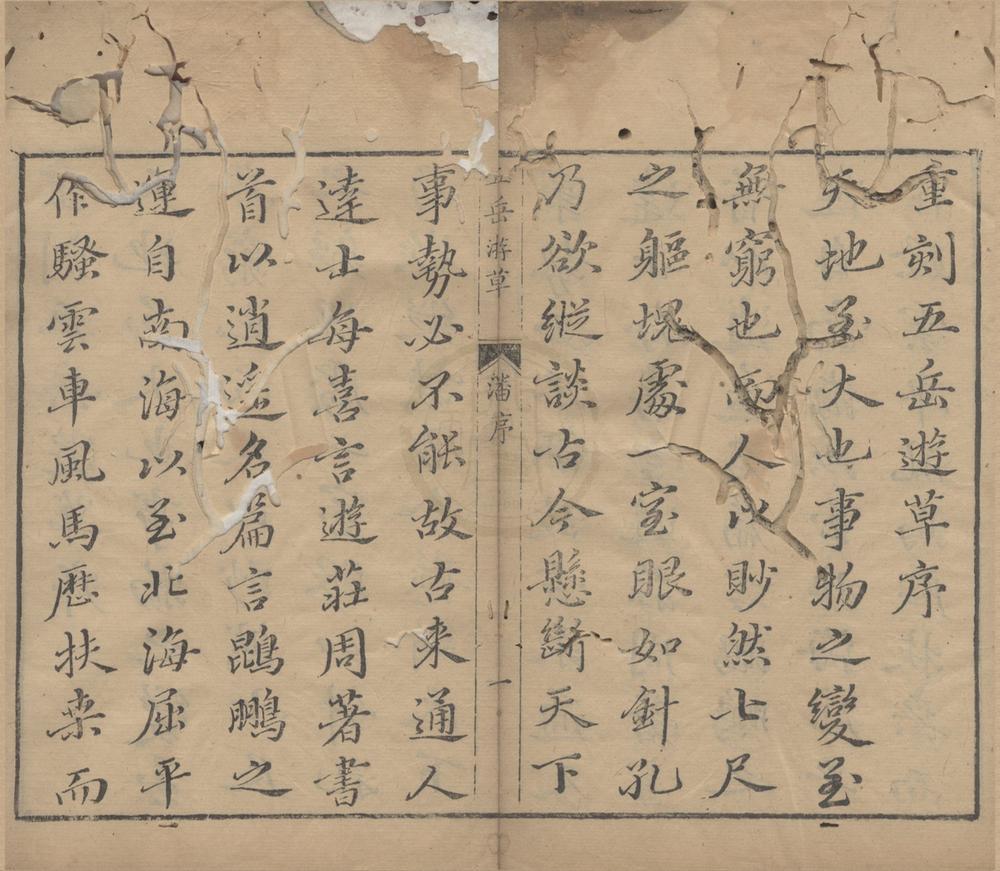 重刻五岳遊草序
天地至大也事物之變至
無窮也而人以眇然七尺
之軀塊處一室眼如針孔
乃欲縱談古今懸斷天下
五岳游草 潘序 一
事勢必不能故古来通人
達士每喜言遊莊周著書
首以逍遥名篇言鵾鵬之
運自南海以至北海屈平
作騷雲車風馬歴扶桒而